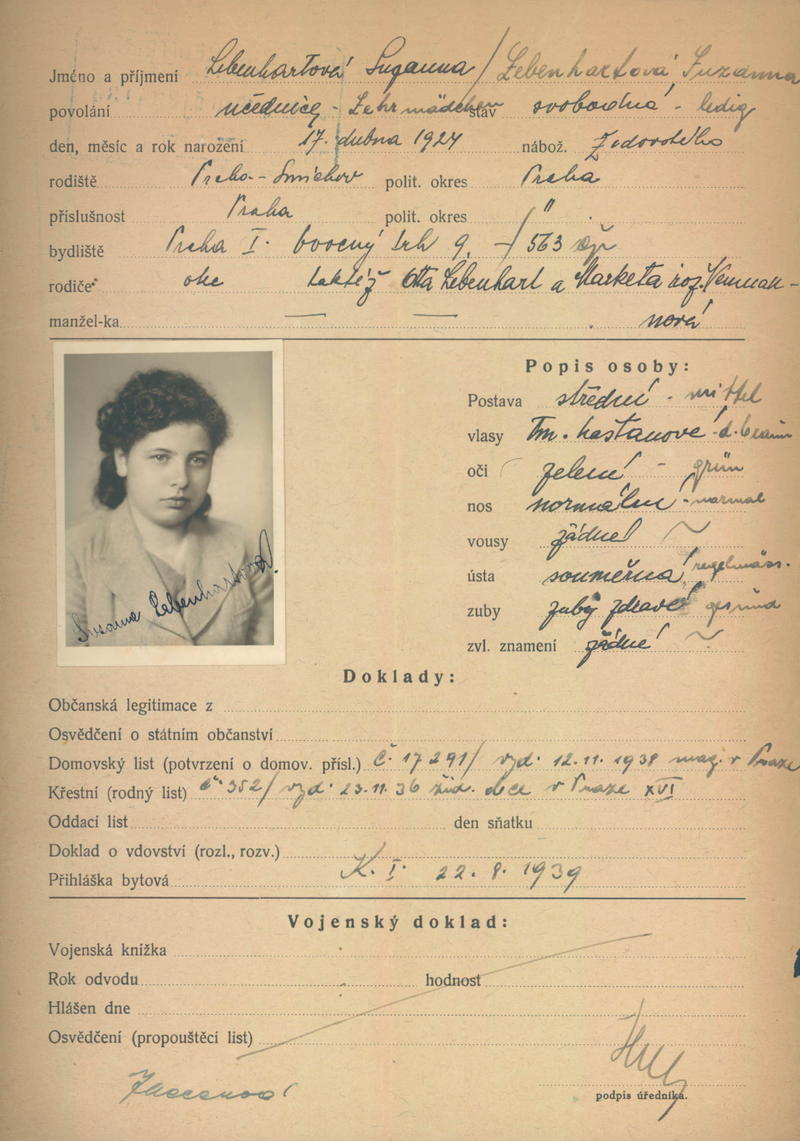 Jméno a příjmení Lebenhartová Suzanna / Lebenhartová Suzanna
povolání učednice - Lehrmädchen stav svobodná - ledig
den, měsíc a rok narození 17. dubna 1924 nábož. židovského
rodiště Praha - Smíchov polit. okres Praha
příslušnost Praha polit. okres "
bydliště Praha I. ovocný trh 9. - / 563
rodiče otec taktéž Otta Lebenhart a Marketa roz.
manžel-ka — — nová
Popis osoby:
Postava střední - mittel
vlasy Tm. kaštanové - d. braun
oči zelené - grün
nos normální - normal
vousy žádné ~
ústa souměrná regelmäss.
zuby zuby zdravé gesund
zvl. znamení žádné ~
Susanna Lebenhartová.
Doklady:
Občanská legitimace z
Osvědčení o státním občanství
Domovský list (potvrzení o domov. přísl.) č. 17291/ vyd. 12. 11. 1938 mag. v Praze
Křestní (rodný list) č. 352/ vyd. 23. 11. 36 žid. obce v Praze XVI
Oddací list den sňatku
Doklad o vdovství (rozl., rozv.)
Přihláška bytová K. I. 22. 8. 1939
Vojenský doklad:
Vojenská knížka
Rok odvodu hodnost
Hlášen dne
Osvědčení (propouštěcí list)
podpis úředníka.